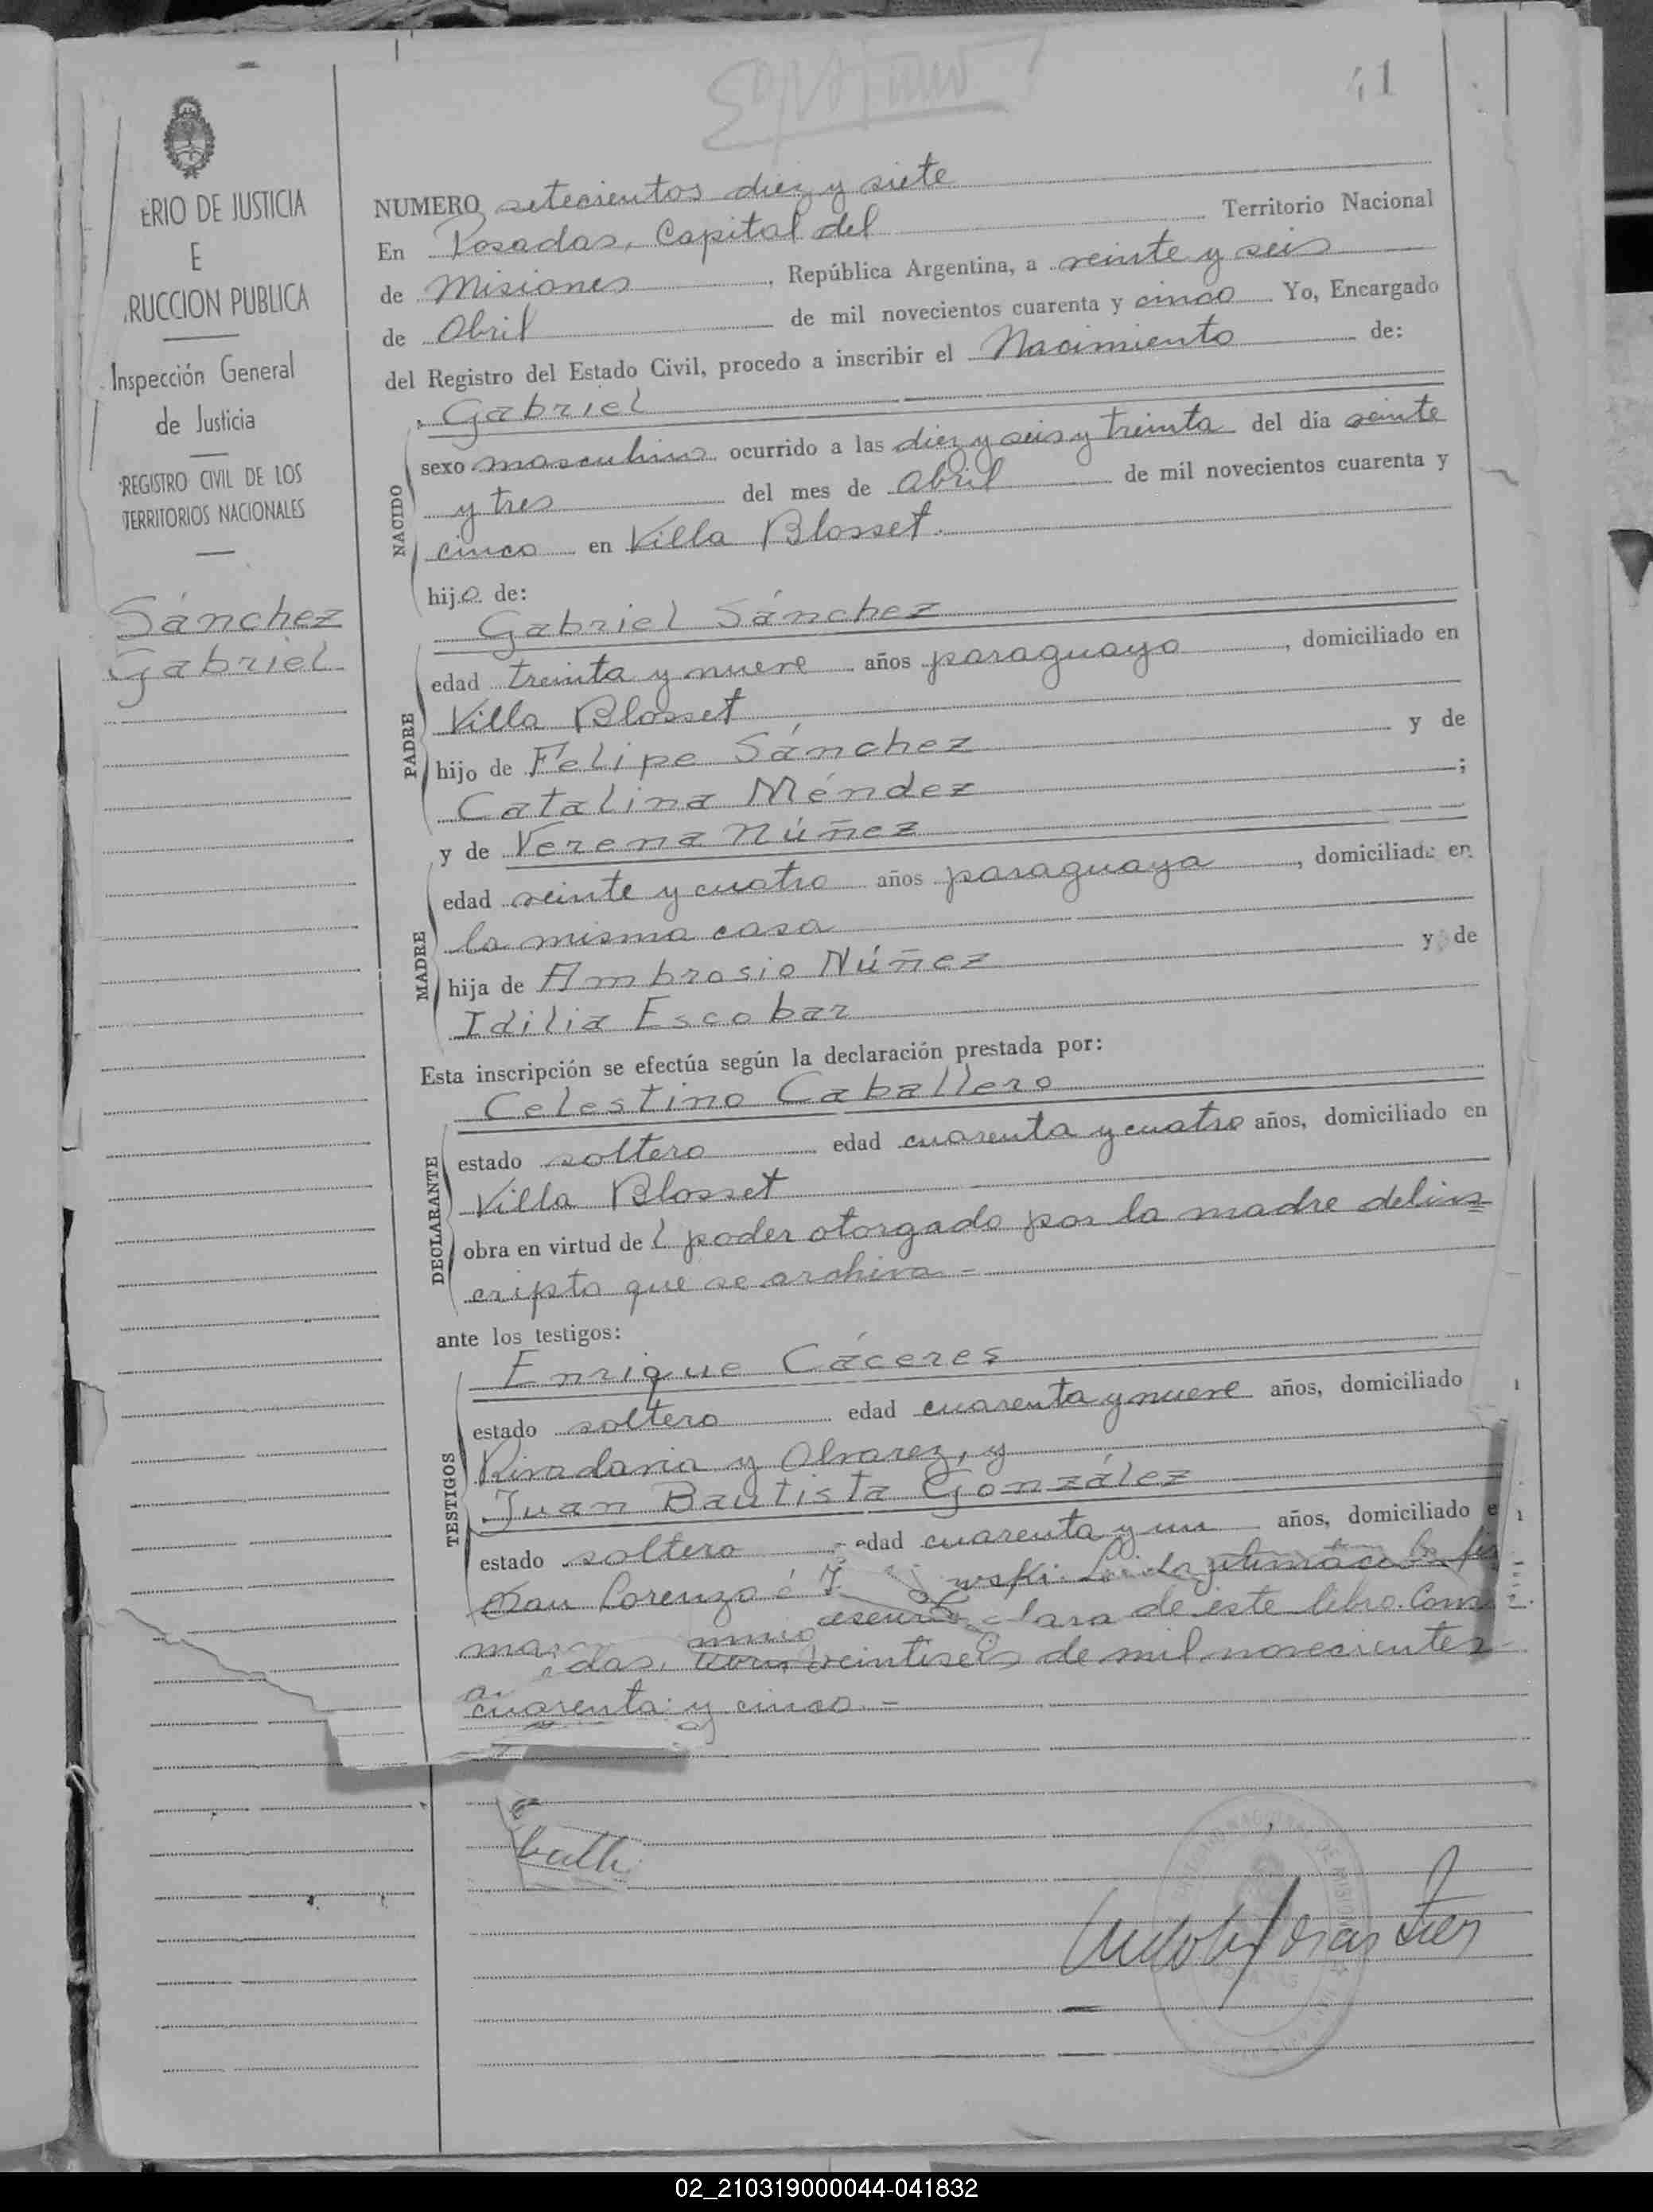 41
ERIO DE JUSTICIA
E
RUCCION PUBLICA
Inspección General
de Justicia
REGISTRO CIVIL DE LOS
TERRITORIOS NACIONALES
Sánchez
Gabriel
NUMERO setecientos diez y siete
En Posadas, Capital del Territorio Nacional
de Misiones, República Argentina, a veinte y seis
de Abril de mil novecientos cuarenta y cinco Yo, Encargado
del Registro del Estado Civil, procedo a inscribir el Nacimiento de:
Gabriel
NACIDO
sexo masculino ocurrido a las diez y seis y treinta del día veinte
y tres del mes de abril de mil novecientos cuarenta y
cinco en Villa Blosset.
hijo de:
Gabriel Sánchez
PADRE
edad treinta y nueve años paraguayo, domiciliado en
Villa Blosset
hijo de Felipe Sánchez y de
Catalina Méndez;
y de Verena Núñez
MADRE
edad veinte y cuatro años paraguaya, domiciliada en
la misma casa
hija de Ambrosio Núñez y de
Idilia Escobar
Esta inscripción se efectúa según la declaración prestada por:
Celestino Caballero
DECLARANTE
estado soltero edad cuarenta y cuatro años, domiciliado en
Villa Blosset
obra en virtud del poder otorgado por la madre del ins=
cripto que se archiva.-
ante los testigos:
Enrique Cáceres
TESTIGOS
estado soltero edad cuarenta y nueve años, domiciliado
Rivadavia y Alvarez, y
Juan Bautista González
estado soltero - edad cuarenta y un años, domiciliado e
San Lorenzo é
de este libro.
das, veintiseis de mil novecientos
cuarenta y cinco.-
02_210319000044-041832